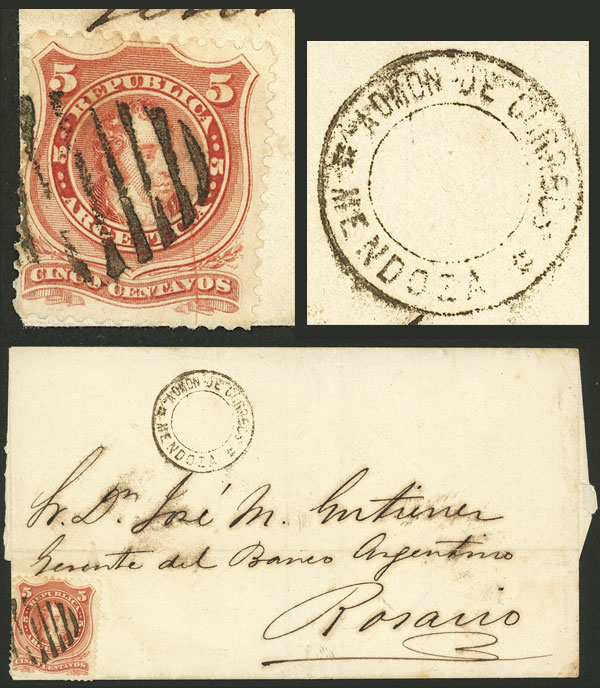 5 5
REPUBLICA
5 5
ARGENTINA
CINCO CENTAVOS
ADMON DE CORREOS
MENDOZA
ADMON DE CORREOS
MENDOZA
Sr. Dn. José M. Gutierrez
Gerente del Banco Argentino
Rosario
5 5
REPUBLICA
ARGENTINA
CINCO CENTAVOS